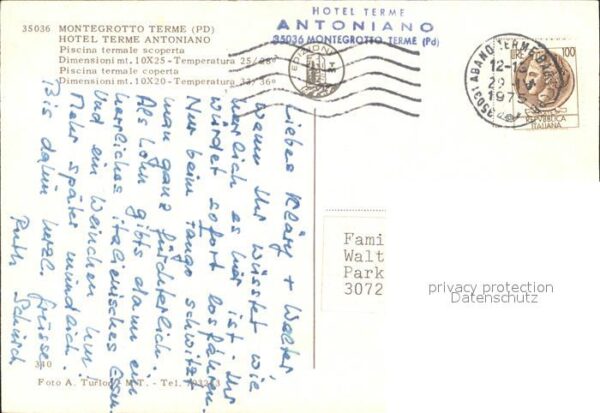 35036 MONTEGROTTO TERME (PD)
HOTEL TERME ANTONIANO
Piscina termale scoperta
Dimensioni mt. 10X25 - Temperatura 25/28°
Piscina termale coperta
Dimensioni mt. 10X20 - Temperatura 33/36°
HOTEL TERME
ANTONIANO
35036 MONTEGROTTO TERME (Pd)
EDIZIONI
35031 ABANO TERME
12-10
29
1975
LIRE
100
REPVBBLICA
ITALIANA
Liebes Kläry + Walter
wenn Ihr wüsstet wie
herrlich es hier ist. Ihr
würdet sofort losfahren.
Nur beim Tango schwitzt
man ganz fürchterlich.
Als Lohn gibts dann ein
herrliches italienisches Essen
Und ein Weinchen hm!
Mehr später mündlich.
Bis dahin herzl. Grüsse
Ruth
Fami
Walt
Park
3072
privacy protection
Datenschutz
340
Foto A. - M.T. - Tel.